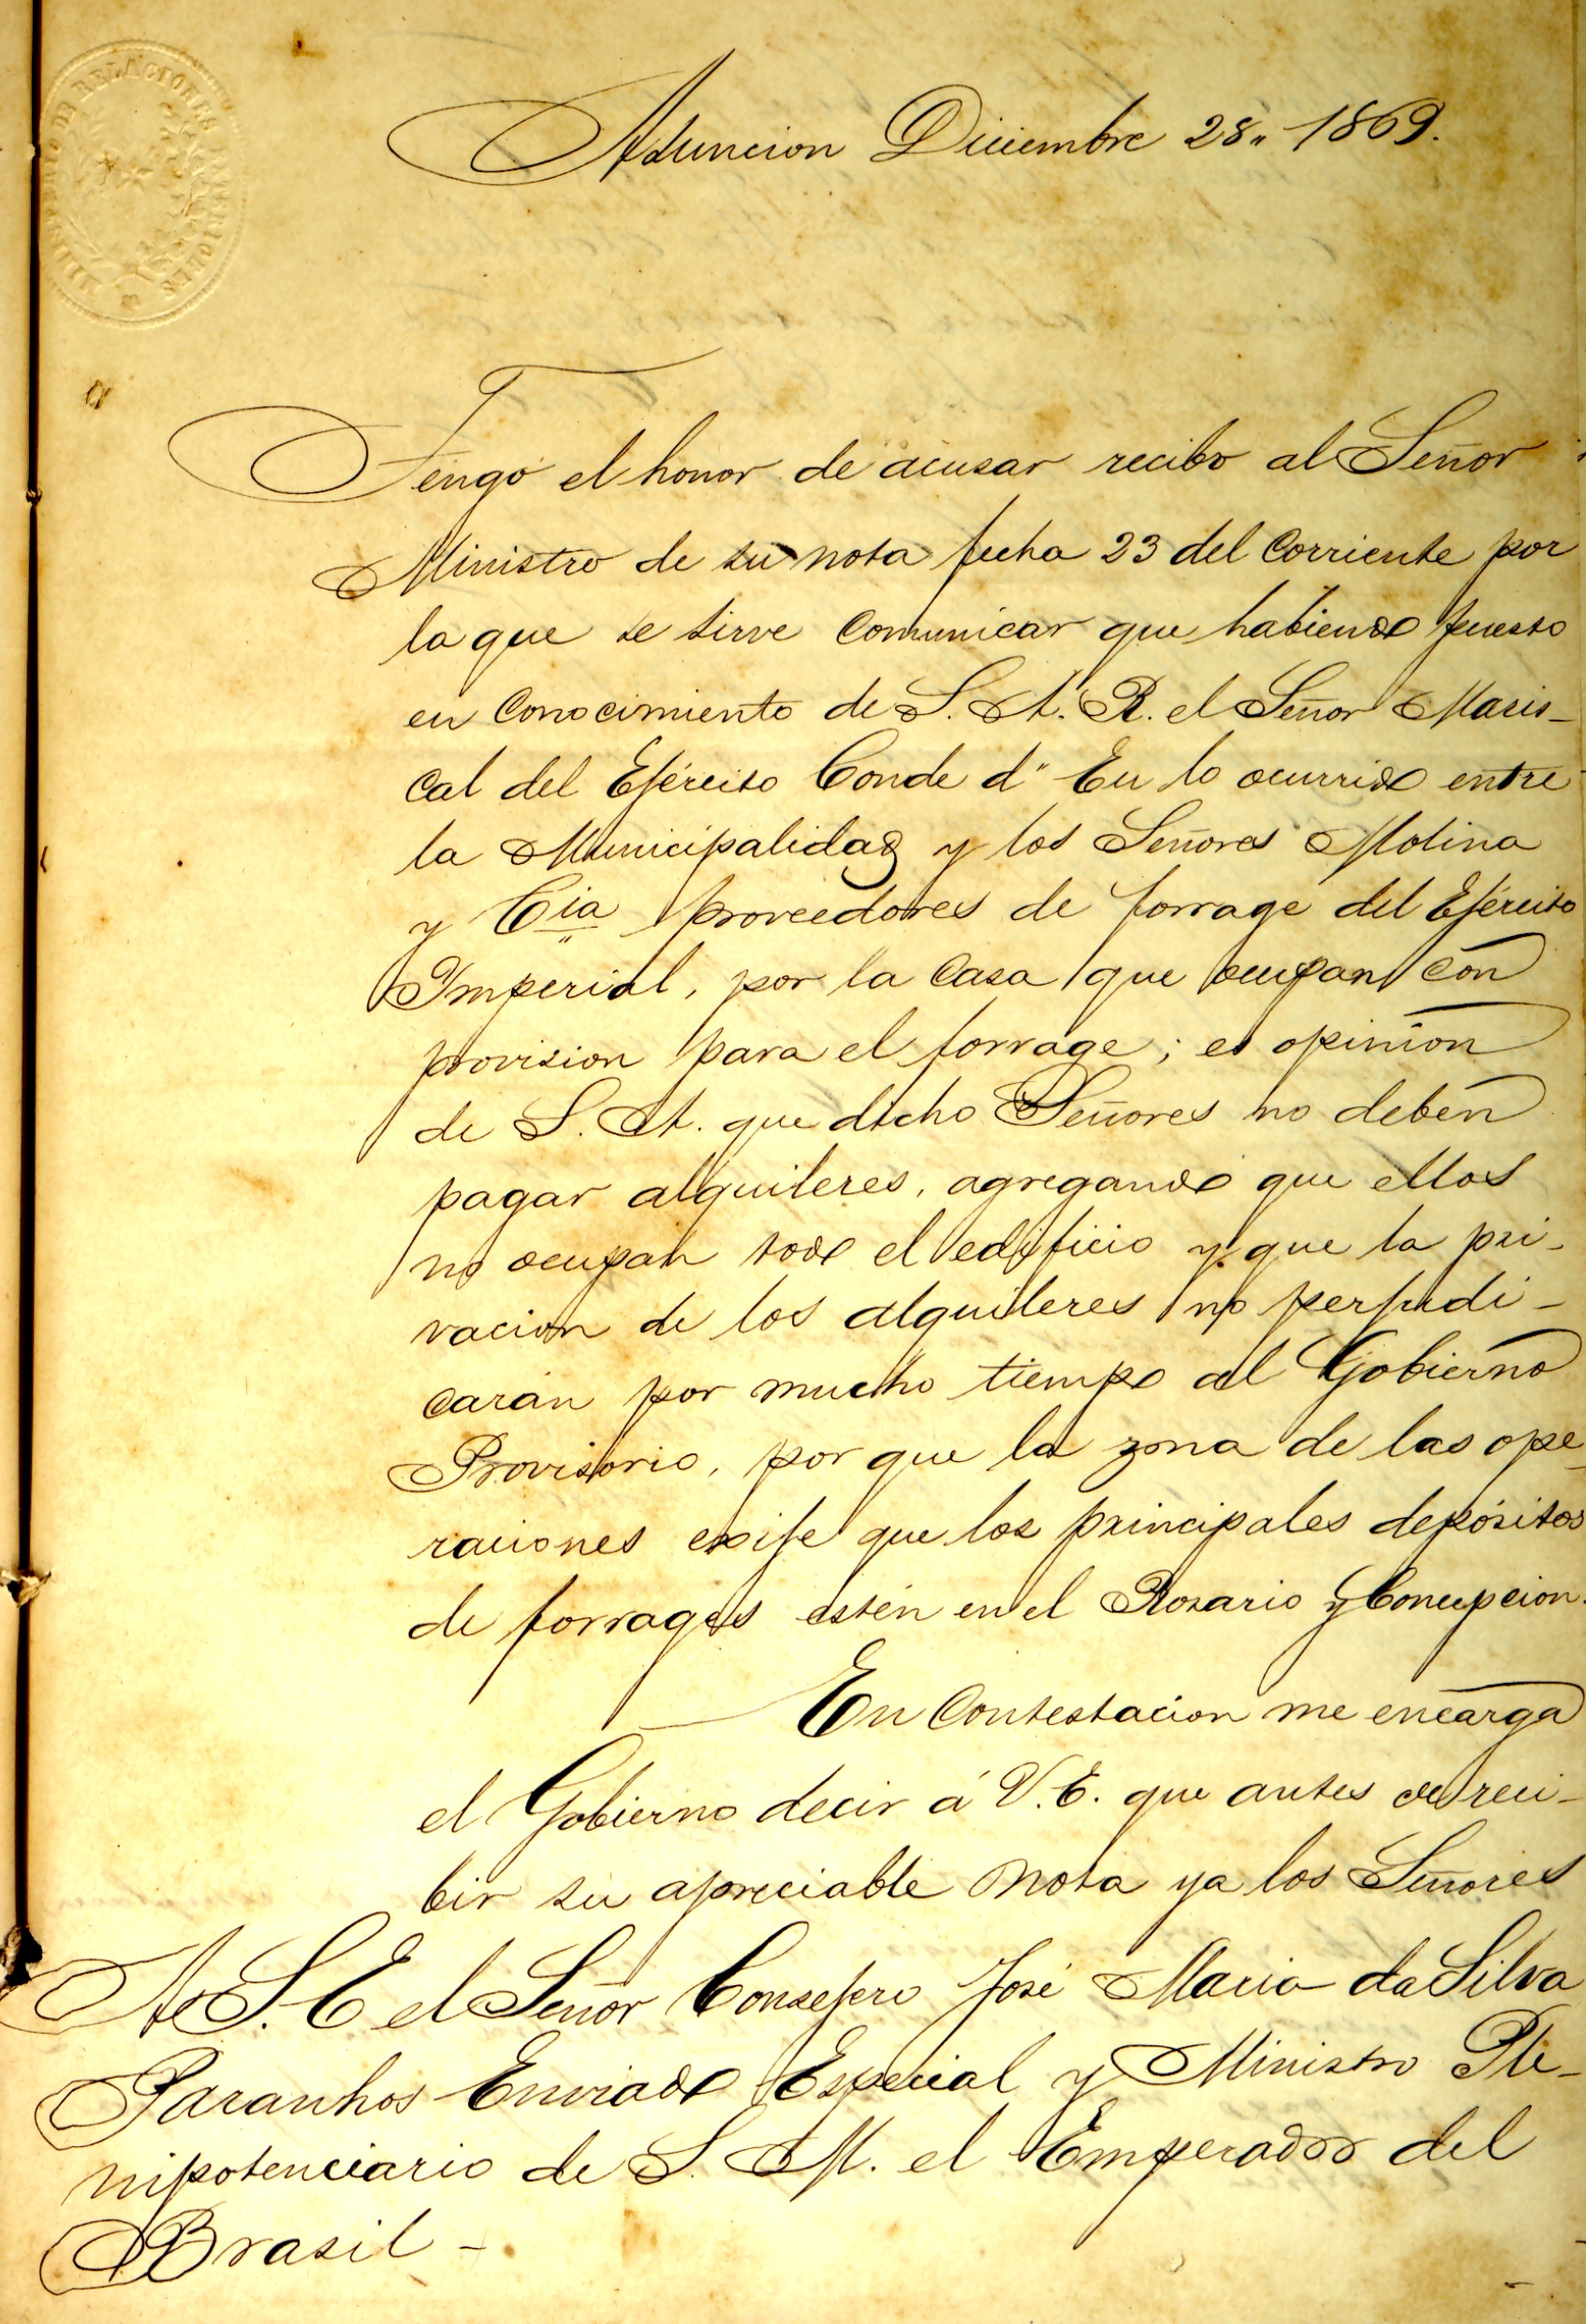 MINISTERIO DE RELACIONES EXTERIORES
Asuncion Diciembre 28„ 1869.
Tengo el honor de acusar recibo al Señor
Ministro de su nota fecha 23 del Corriente por
la que se sirve Comunicar que habiendo puesto
en Conocimiento de S. A. R. el Señor Maris-
cal del Ejército Conde d" Eu lo ocurrido entre
la Municipalidad y los Señores Molina
y Cia proveedores de forrage del Ejército
Imperial, por la Casa que ocupan con
provision para el forrage; es opinion
de S. A. que dicho Señores no deben
pagar alquileres, agregando que ellos
no ocupan todo el edificio y que la pri-
vacion de los alquileres no perjudi-
carán por mucho tiempo al Gobierno
Provisorio, por que la zona de las ope-
raciones exije que los principales depósitos
de forrages estén en el Rosario y Concepcion.
En Contestacion me encarga
el Gobierno decir á V. E. que antes de reci-
bir su apreciable nota ya los Señores
A S. E el Señor Consejero José Maria da Silva
Paranhos Enviado Especial y Ministro Ple-
nipotenciario de S. M. el Emperador del
Brasil -